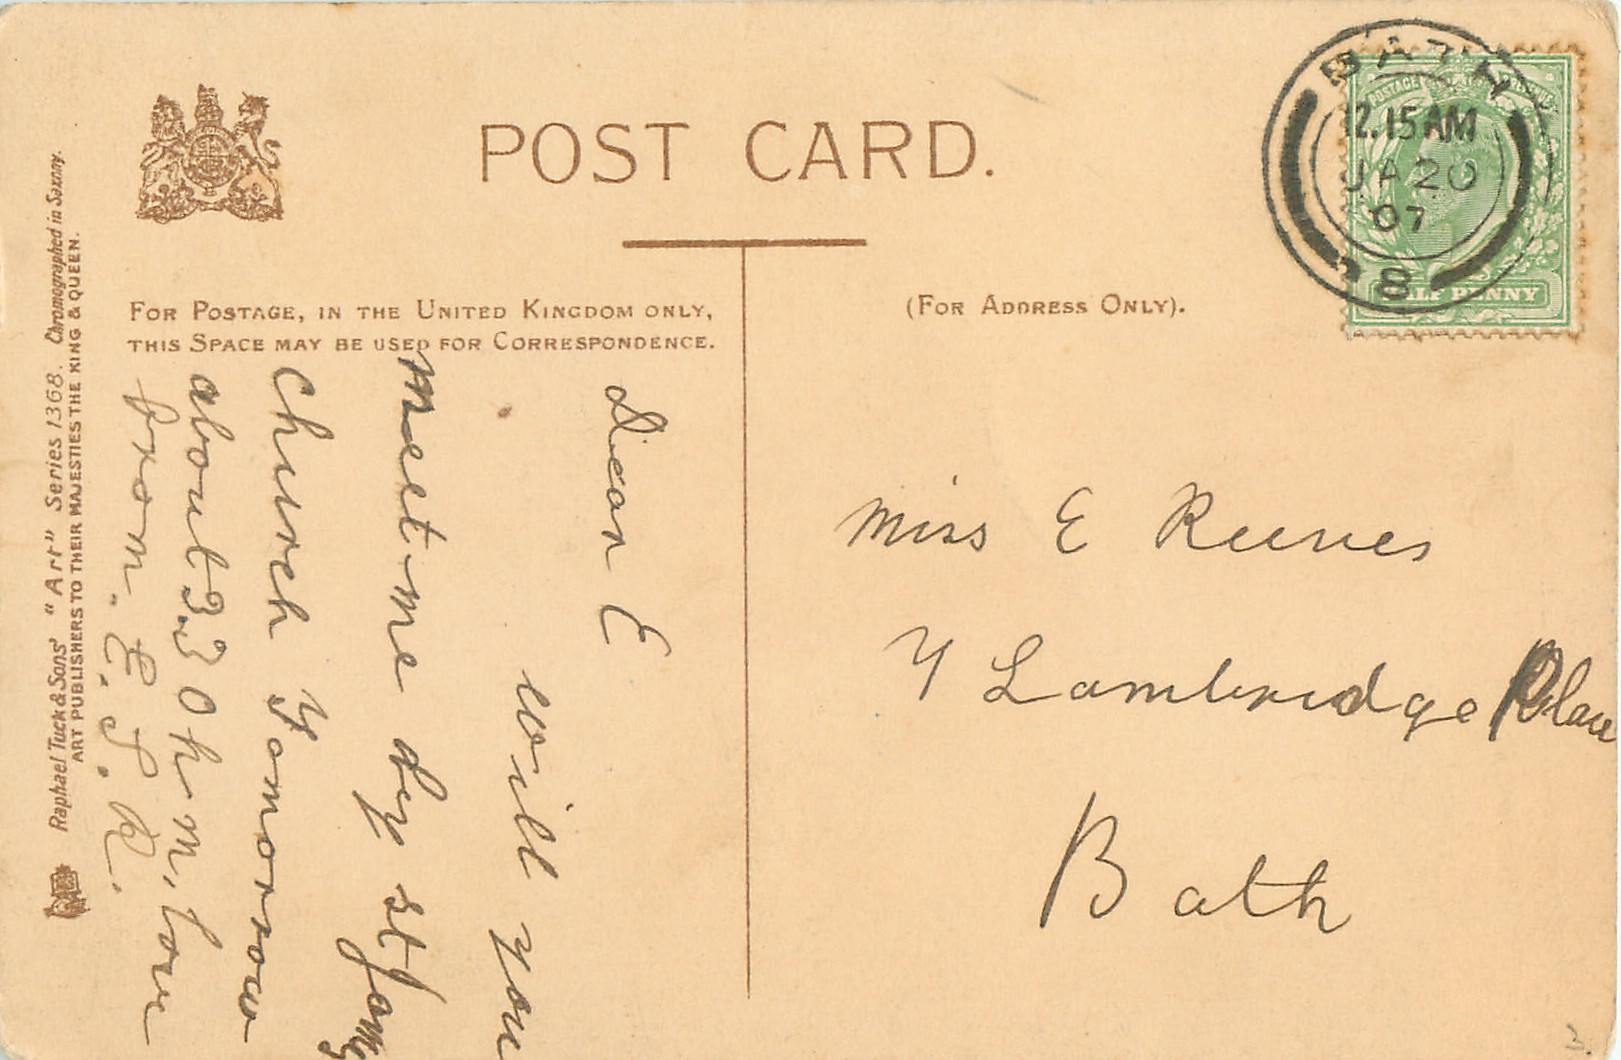 POST CARD.
FOR POSTAGE, IN THE UNITED KINGDOM ONLY,
THIS SPACE MAY BE USED FOR CORRESPONDENCE.
(FOR ADDRESS ONLY).
BATH
12.15 AM
JA 20
07
8
POSTAGE REVENUE
HALF PENNY
Dear E
Will you
meet me by st James
Church Yomorrow
about 3.30 p m. love
from. E. J. R.
Miss E Reeves
7 Lambridge Place
Bath
Raphael Tuck & Sons' "Art" Series 1368. Chromographed in Saxony.
ART PUBLISHERS TO THEIR MAJESTIES THE KING & QUEEN.
3.